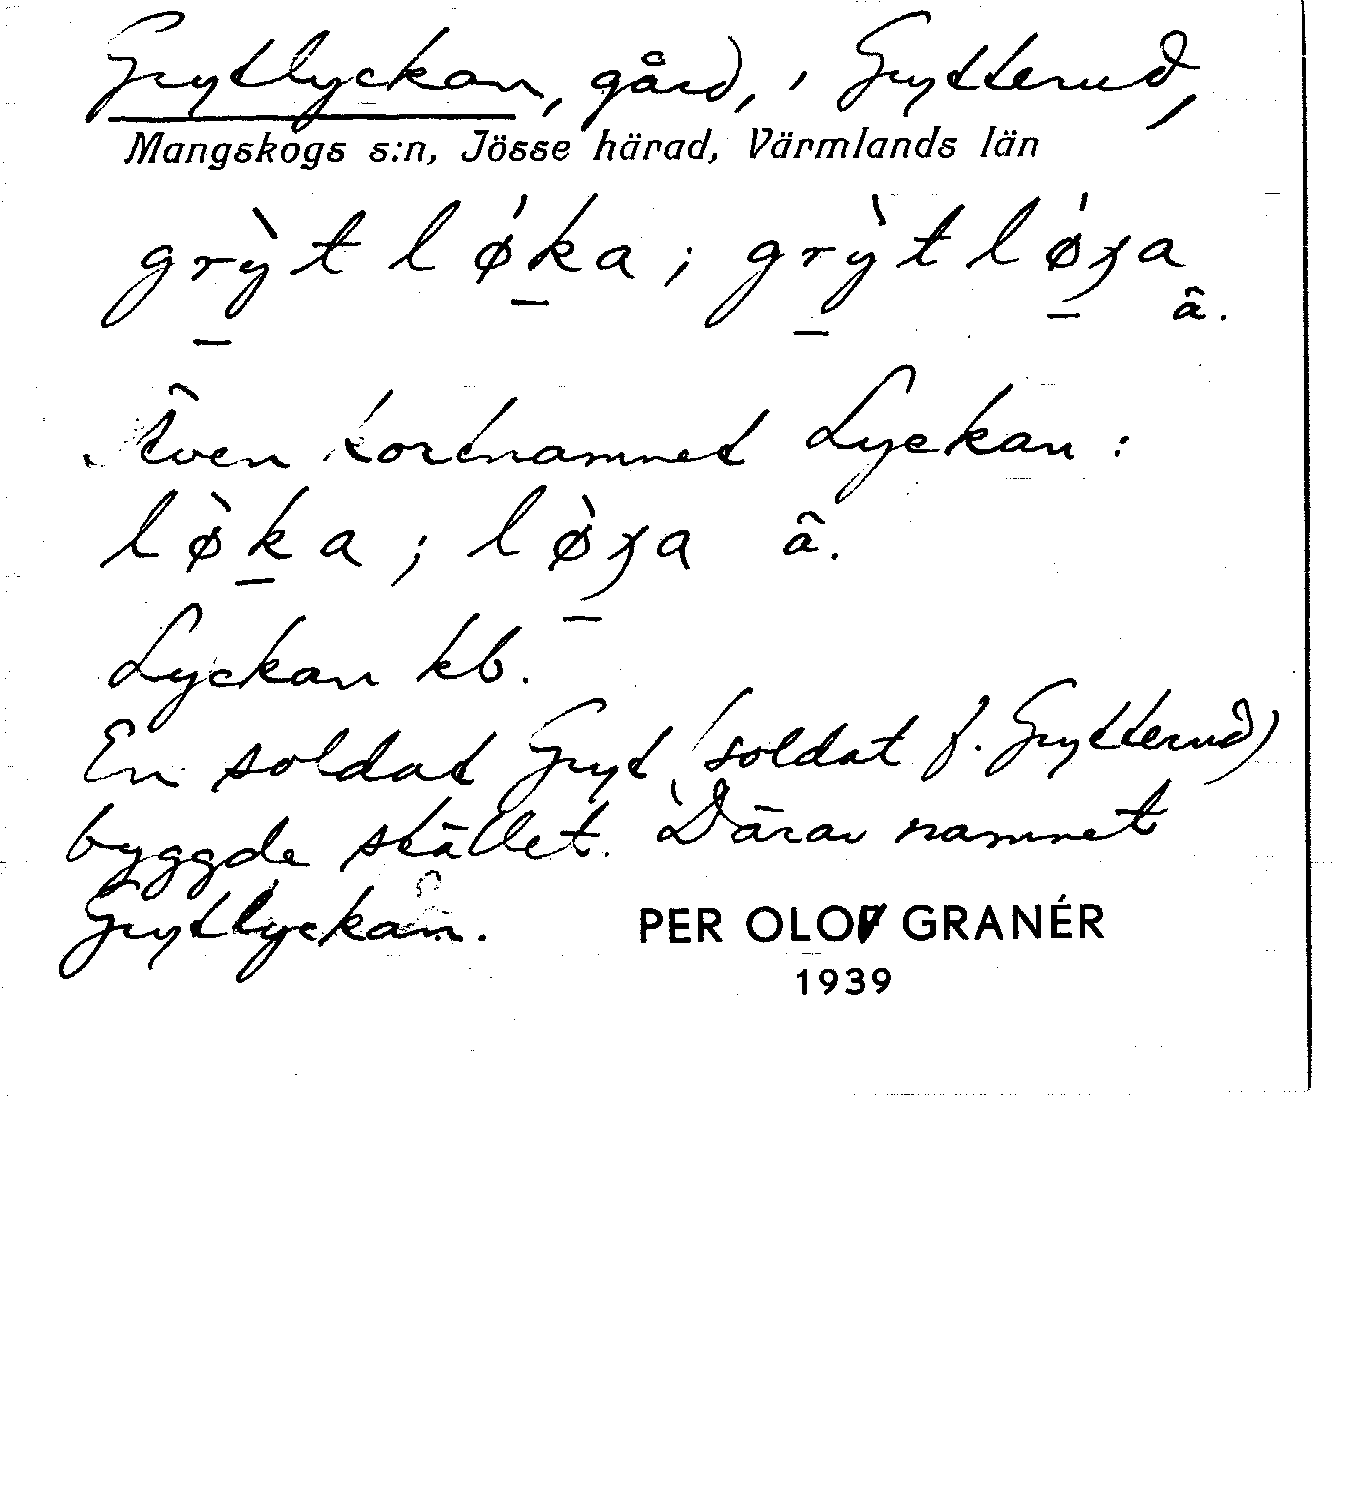 Grytlyckan, gård, i Grytterud,
Mangskogs s:n, Jösse härad, Värmlands län
grỳt lǿka; grỳt lǿʒa
â.
Även kortnamnet Lyckan:
lø̀ka; lø̀ʒa â.
Lyckan kb.
En soldat Gryt (soldat f. Grytterud)
byggde stället. Därav namnet
Grytlyckan.
PER OLOF GRANÉR
1939